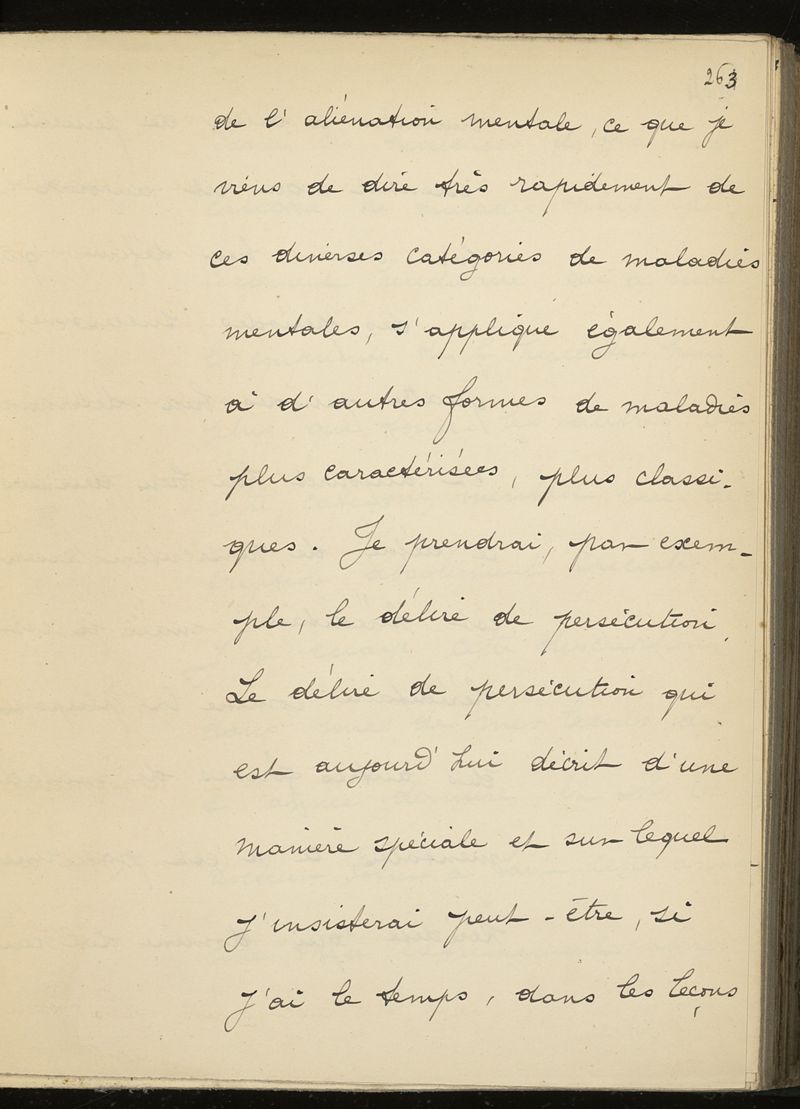 263
de l'aliénation mentale, ce que je
viens de dire très rapidement de
ces diverses catégories de maladies
mentales, s'applique également
à d'autres formes de maladies
plus caractérisées, plus classi-
ques. Je prendrai, par exem-
ple, le délire de persécution.
Le délire de persécution qui
est aujourd'hui décrit d'une
manière spéciale et sur lequel
j'insisterai peut-être, si
j'ai le temps, dans les leçons